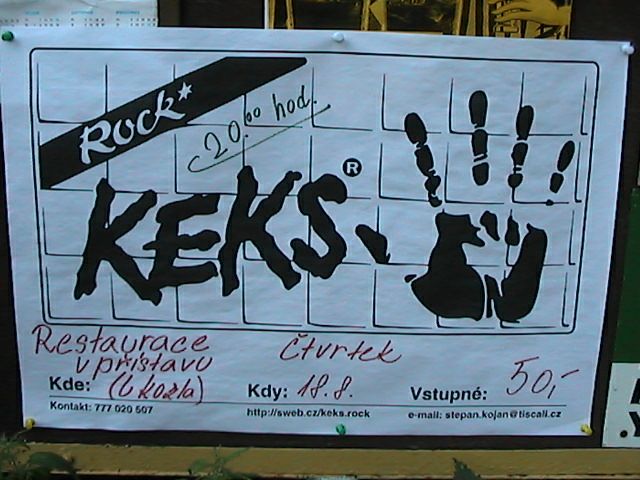 Rock
20.00 hod.
KEKS®
Restaurace
v přístavu
Čtvrtek
Kde: (U kozla)
Kdy: 18.8.
Vstupné: 50,-
Kontakt: 777 020 507
http://sweb.cz/keks.rock
e-mail: stepan.kojan@tiscali.cz